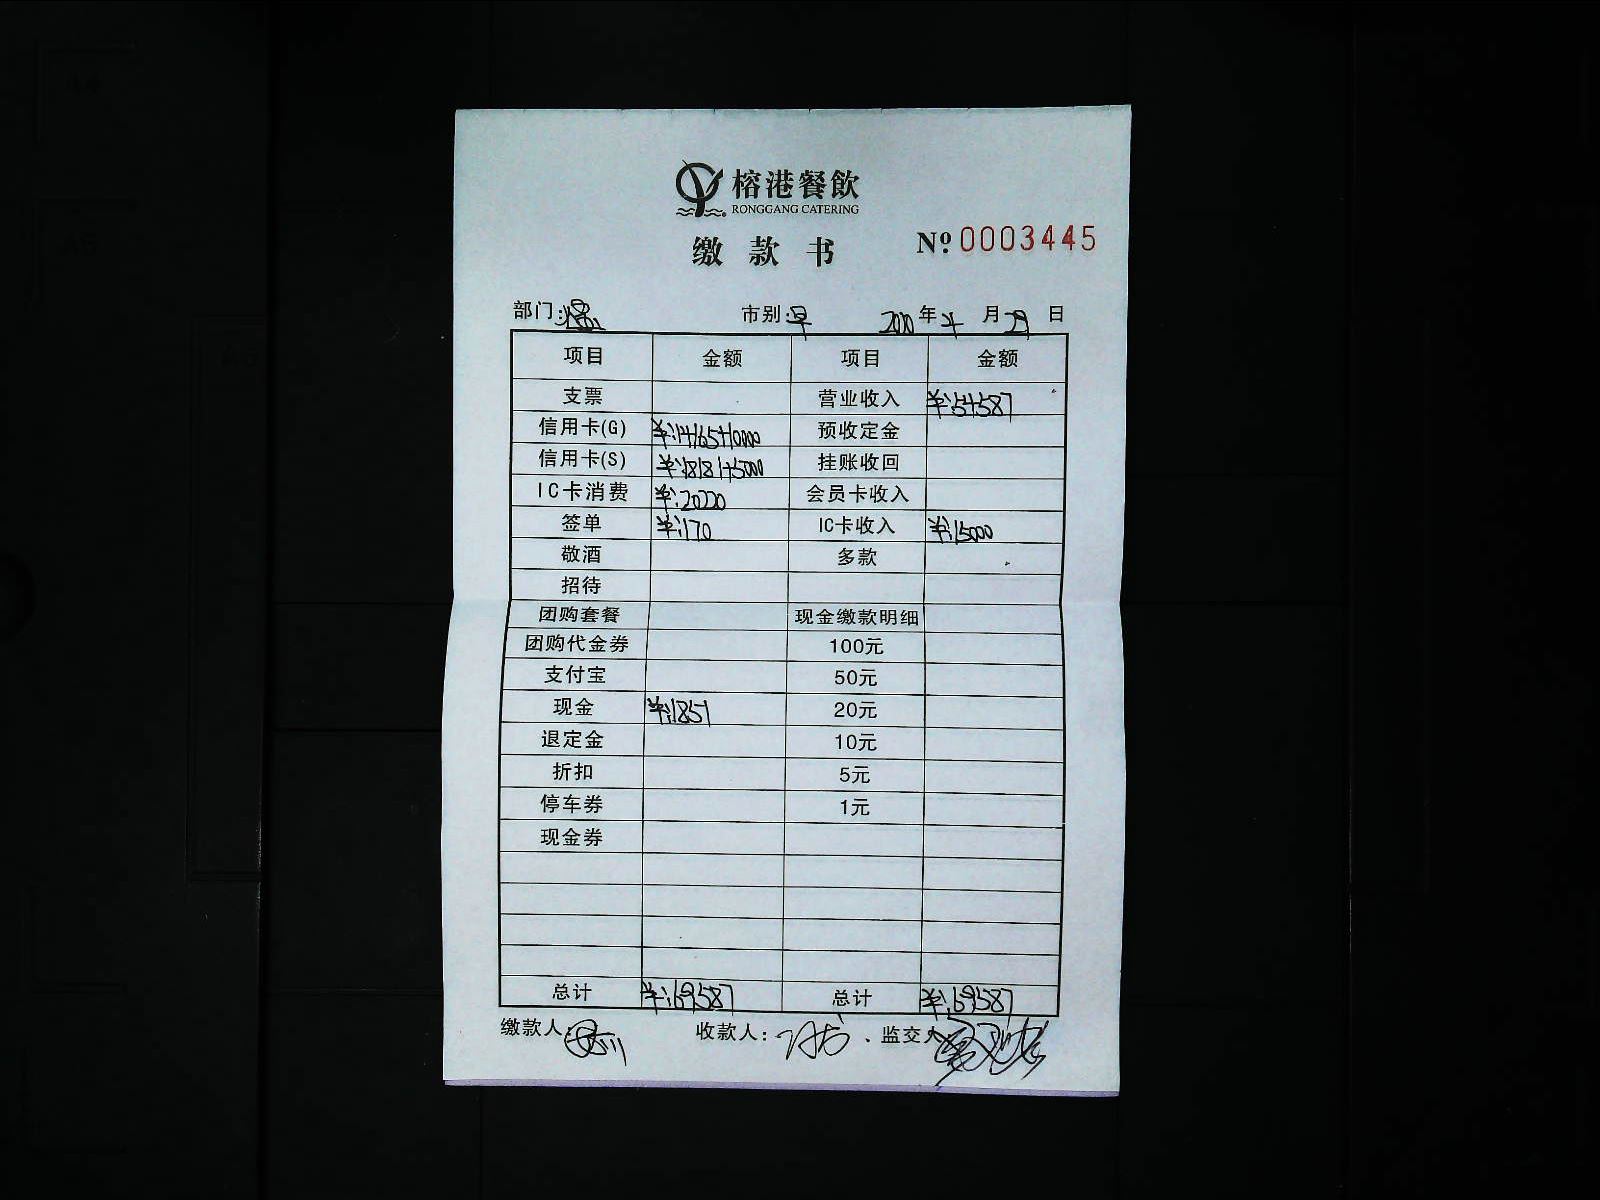 榕港餐飲
RONGGANG CATERING
缴款书 Nº 0003445
部门: 市别:早 年 月 日
项目 金额 项目 金额
支票 营业收入 ¥:54587
信用卡(G) ¥:14165+10000 预收定金
信用卡(S) ¥:18181+5000 挂账收回
IC卡消费 ¥:20220 会员卡收入
签单 ¥:170 IC卡收入 ¥:15000
敬酒 多款
招待
团购套餐 现金缴款明细
团购代金券 100元
支付宝 50元
现金 ¥:1851 20元
退定金 10元
折扣 5元
停车券 1元
现金券
总计 ¥:69587 总计 ¥:69587
缴款人: 收款人: 监交人